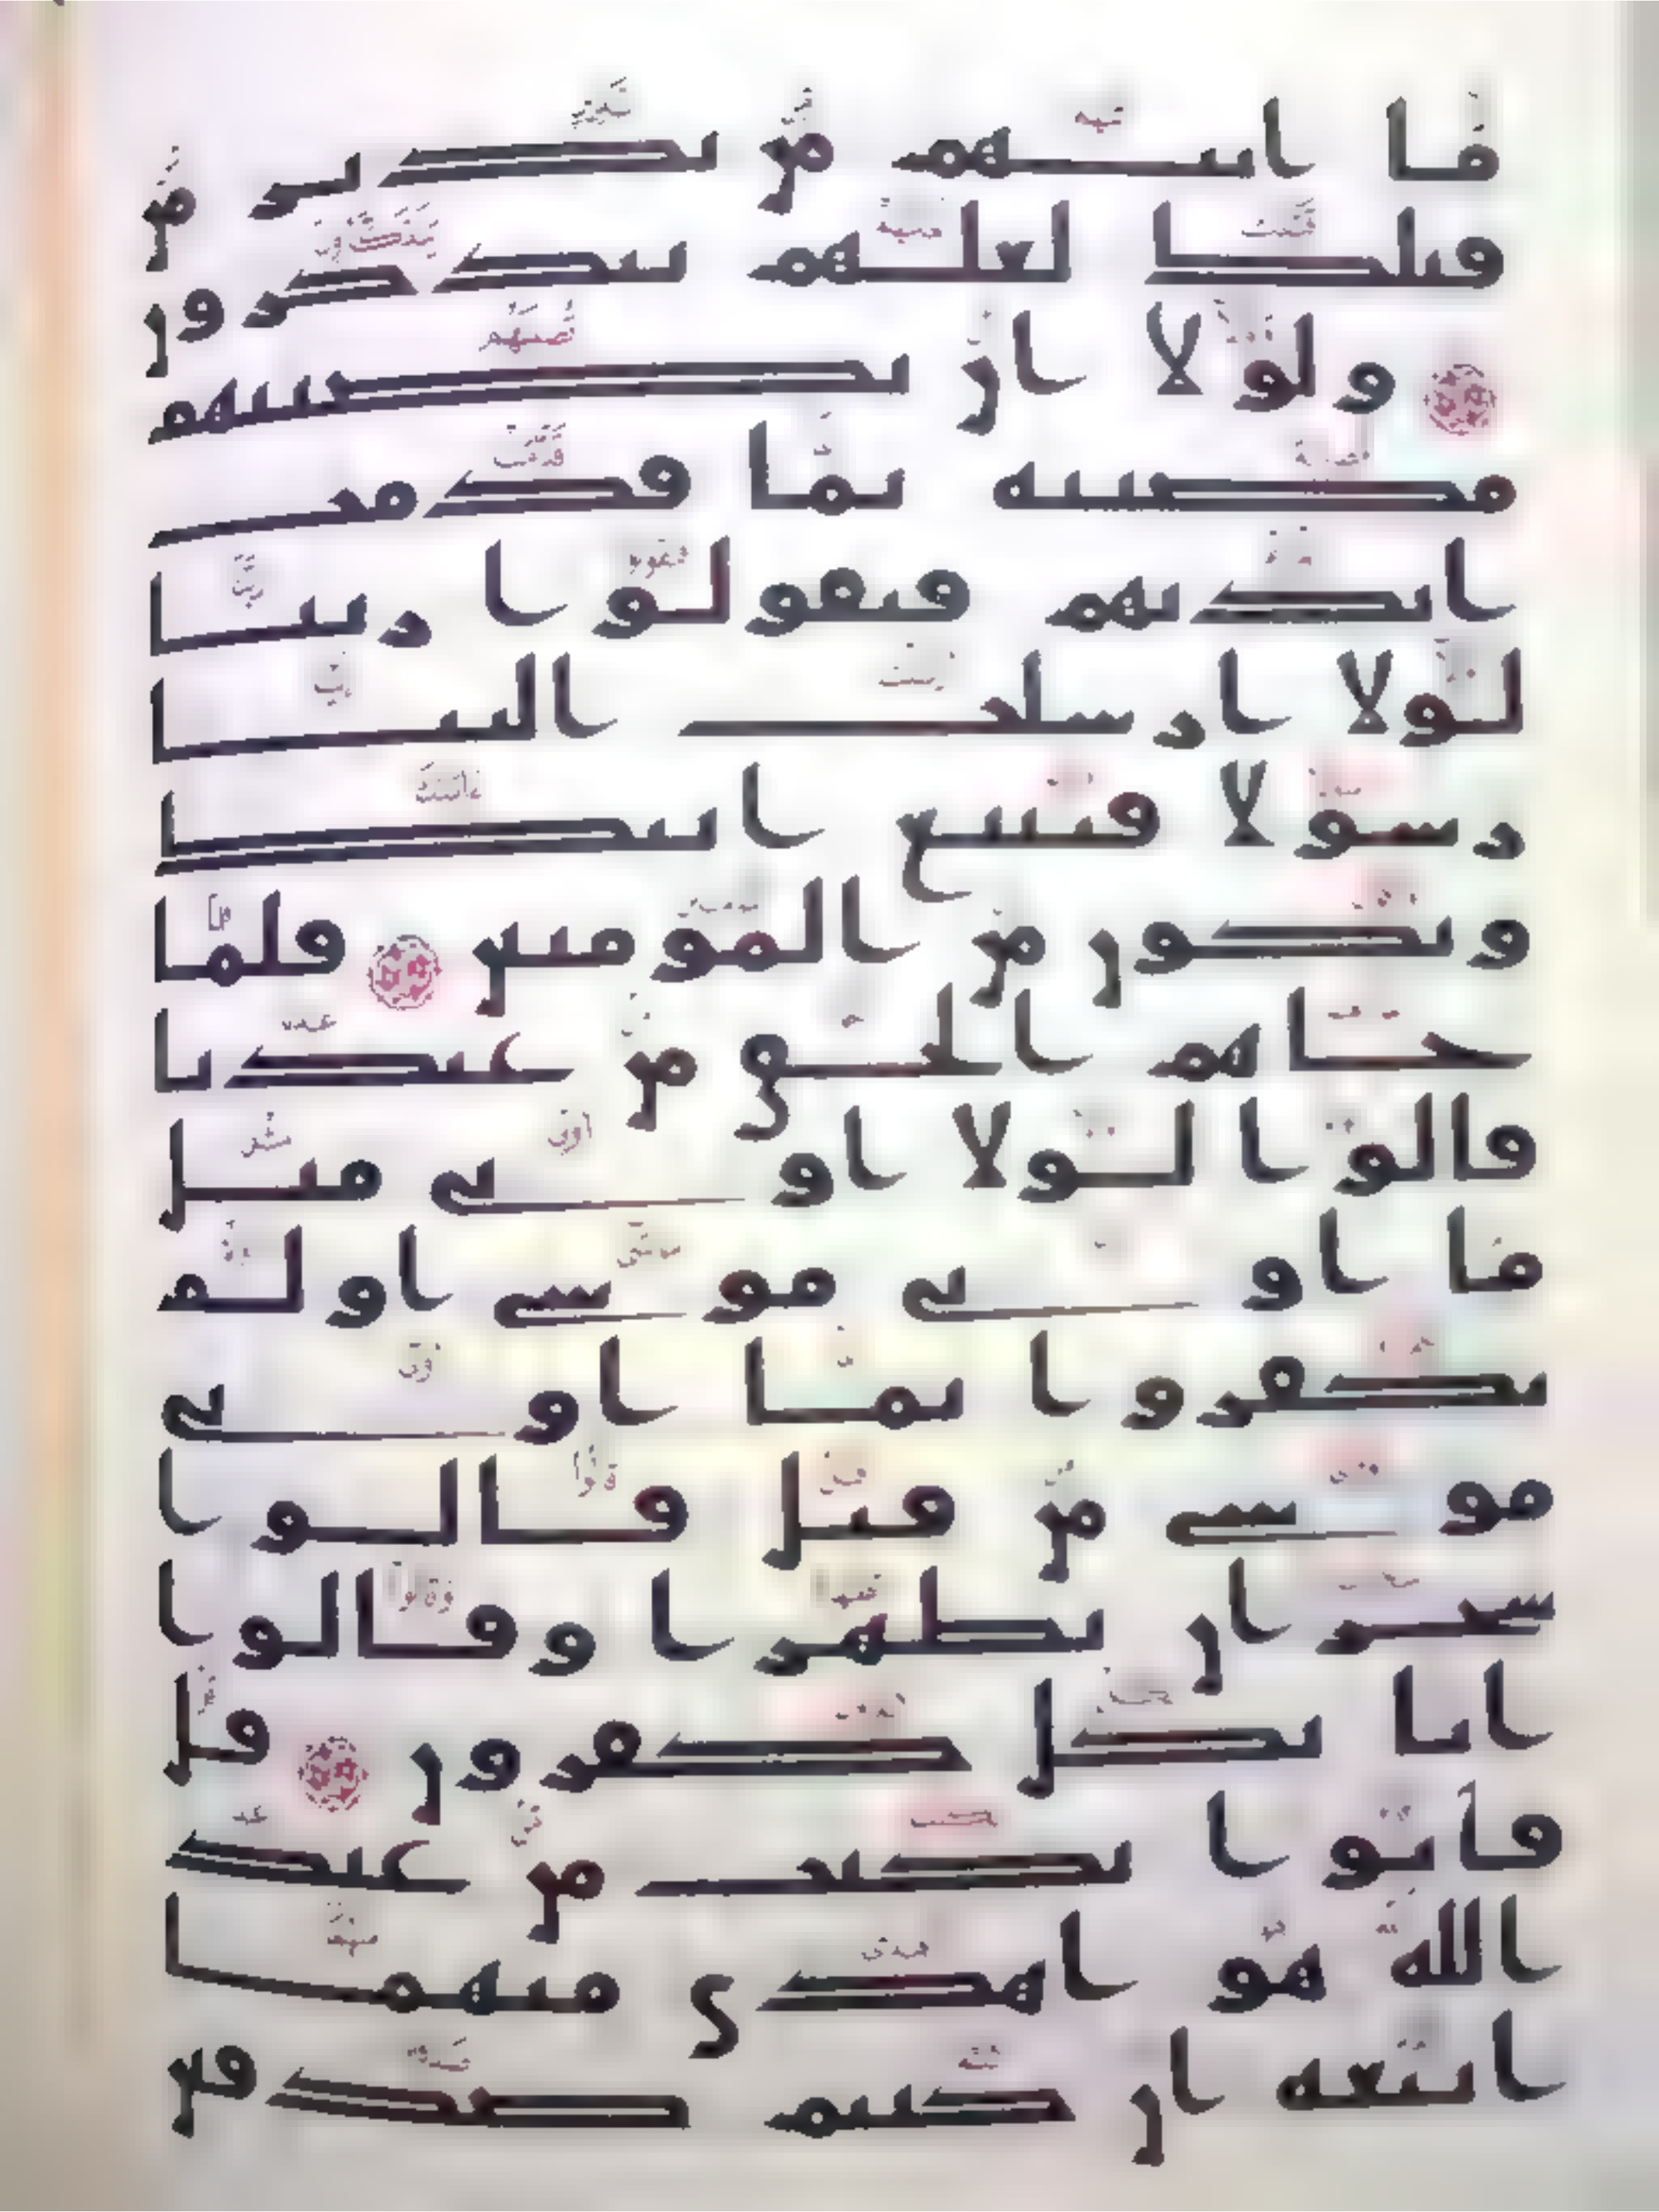 ما اتيهم من نذير من
قبلك لعلهم يتذكرون
ولولا ان تصيبهم
مصيبة بما قدمت
ايديهم فيقولوا ربنا
لولا ارسلت الينا
رسولا فنتبع ايتك
ونكون من المومنين فلما
جاهم الحق من عندنا
قالوا لولا اوتي مثل
ما اوتي موسى اولم
يكفروا بما اوتي
موسى من قبل قالوا
سحران تظهرا وقالوا
انا بكل كفرون قل
فاتوا بكتب من عند
الله هو اهدى منهما
اتبعه ان كنتم صدقين